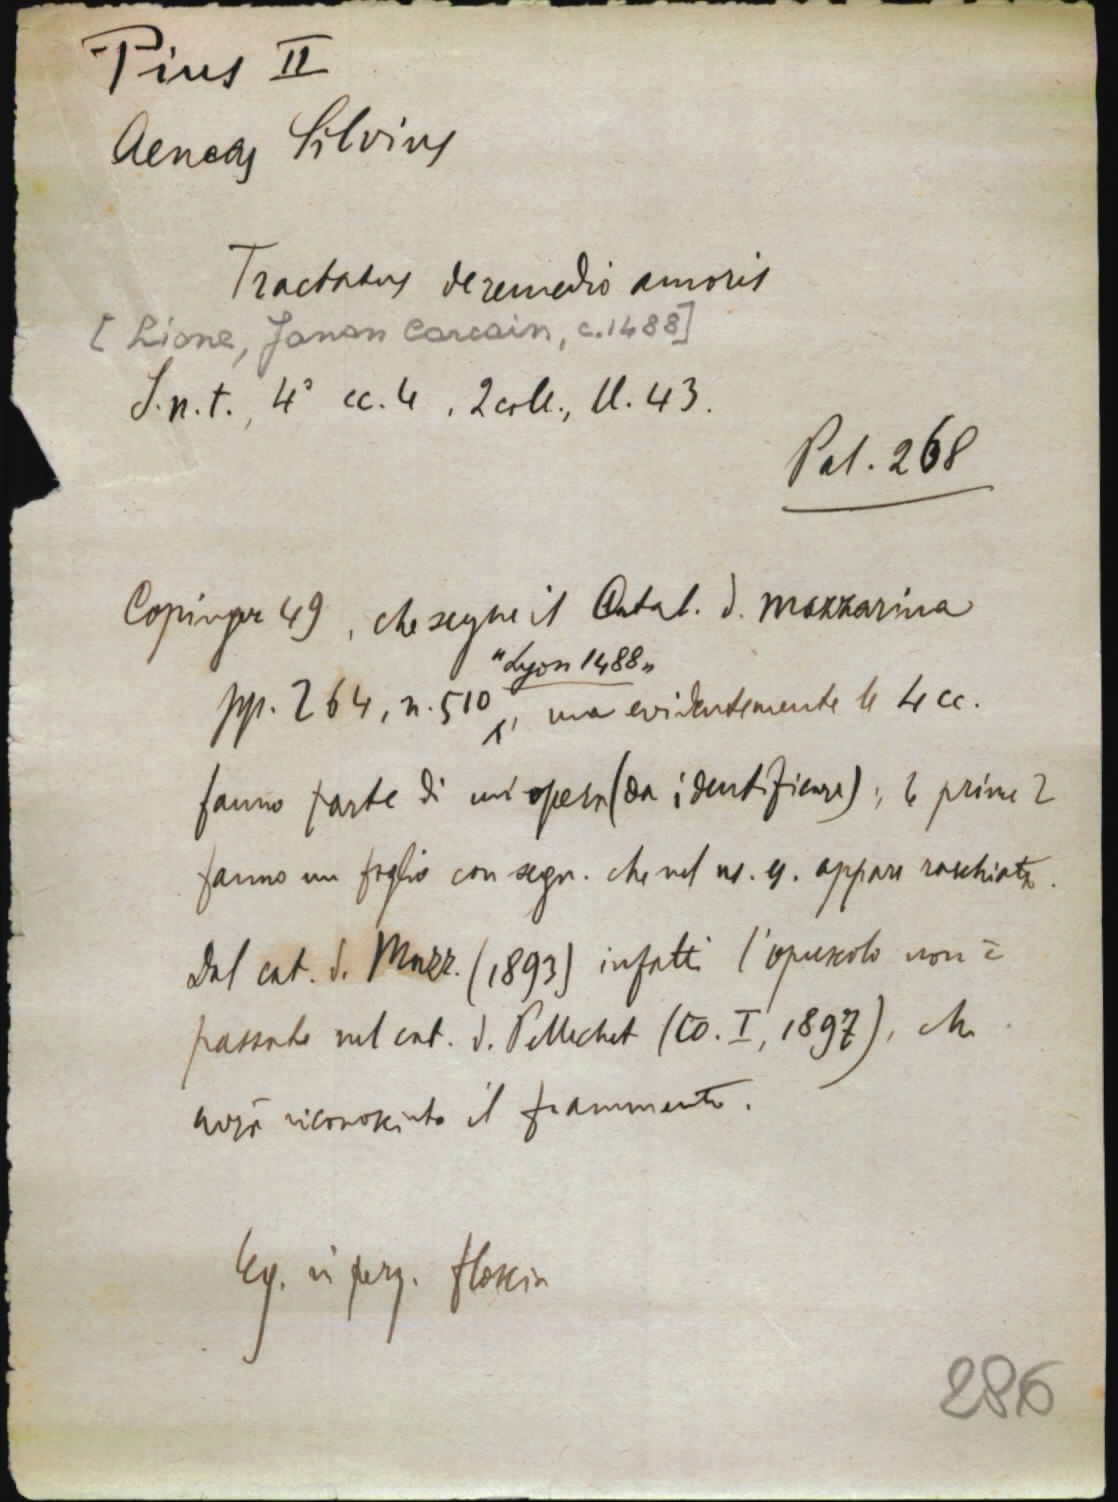 Pius II
Aeneas Silvius
Tractatus de remedio amoris
[Lione, Janon Carcain, c.1488]
S.n.t., 4° cc. 4, 2 coll., ll. 43.
Pal. 268
Copinger 49, che segue il Catal. d. Mazzarina
"Lyon 1488"
pp. 264, n. 510, ma evidentemente le 4 cc.
fanno parte di un'opera (da identificare); le prime 2
fanno un foglio con segn. che nel ns. es. appare raschiata.
Dal cat. d. Mazz. (1893) infatti l'opuscolo non è
passato nel cat. d. Pellechet (to. I, 1897), che
avrà riconosciuto il frammento.
Leg. in perg. floscia
286